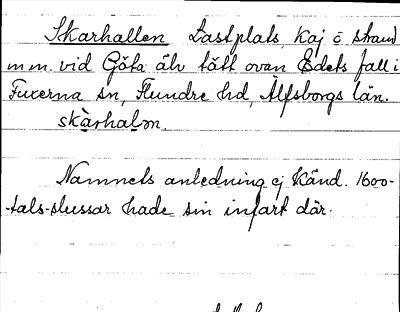 Skarhallen Lastplats, Kaj o strand
m m. vid Göta älv tätt ovan Edets fall i
Fuxerna sn, Flundre hd, Älfsborgs län.
skàrhalən.
Namnets anledning ej känd. 1600-
-tals-slussar hade sin infart där.